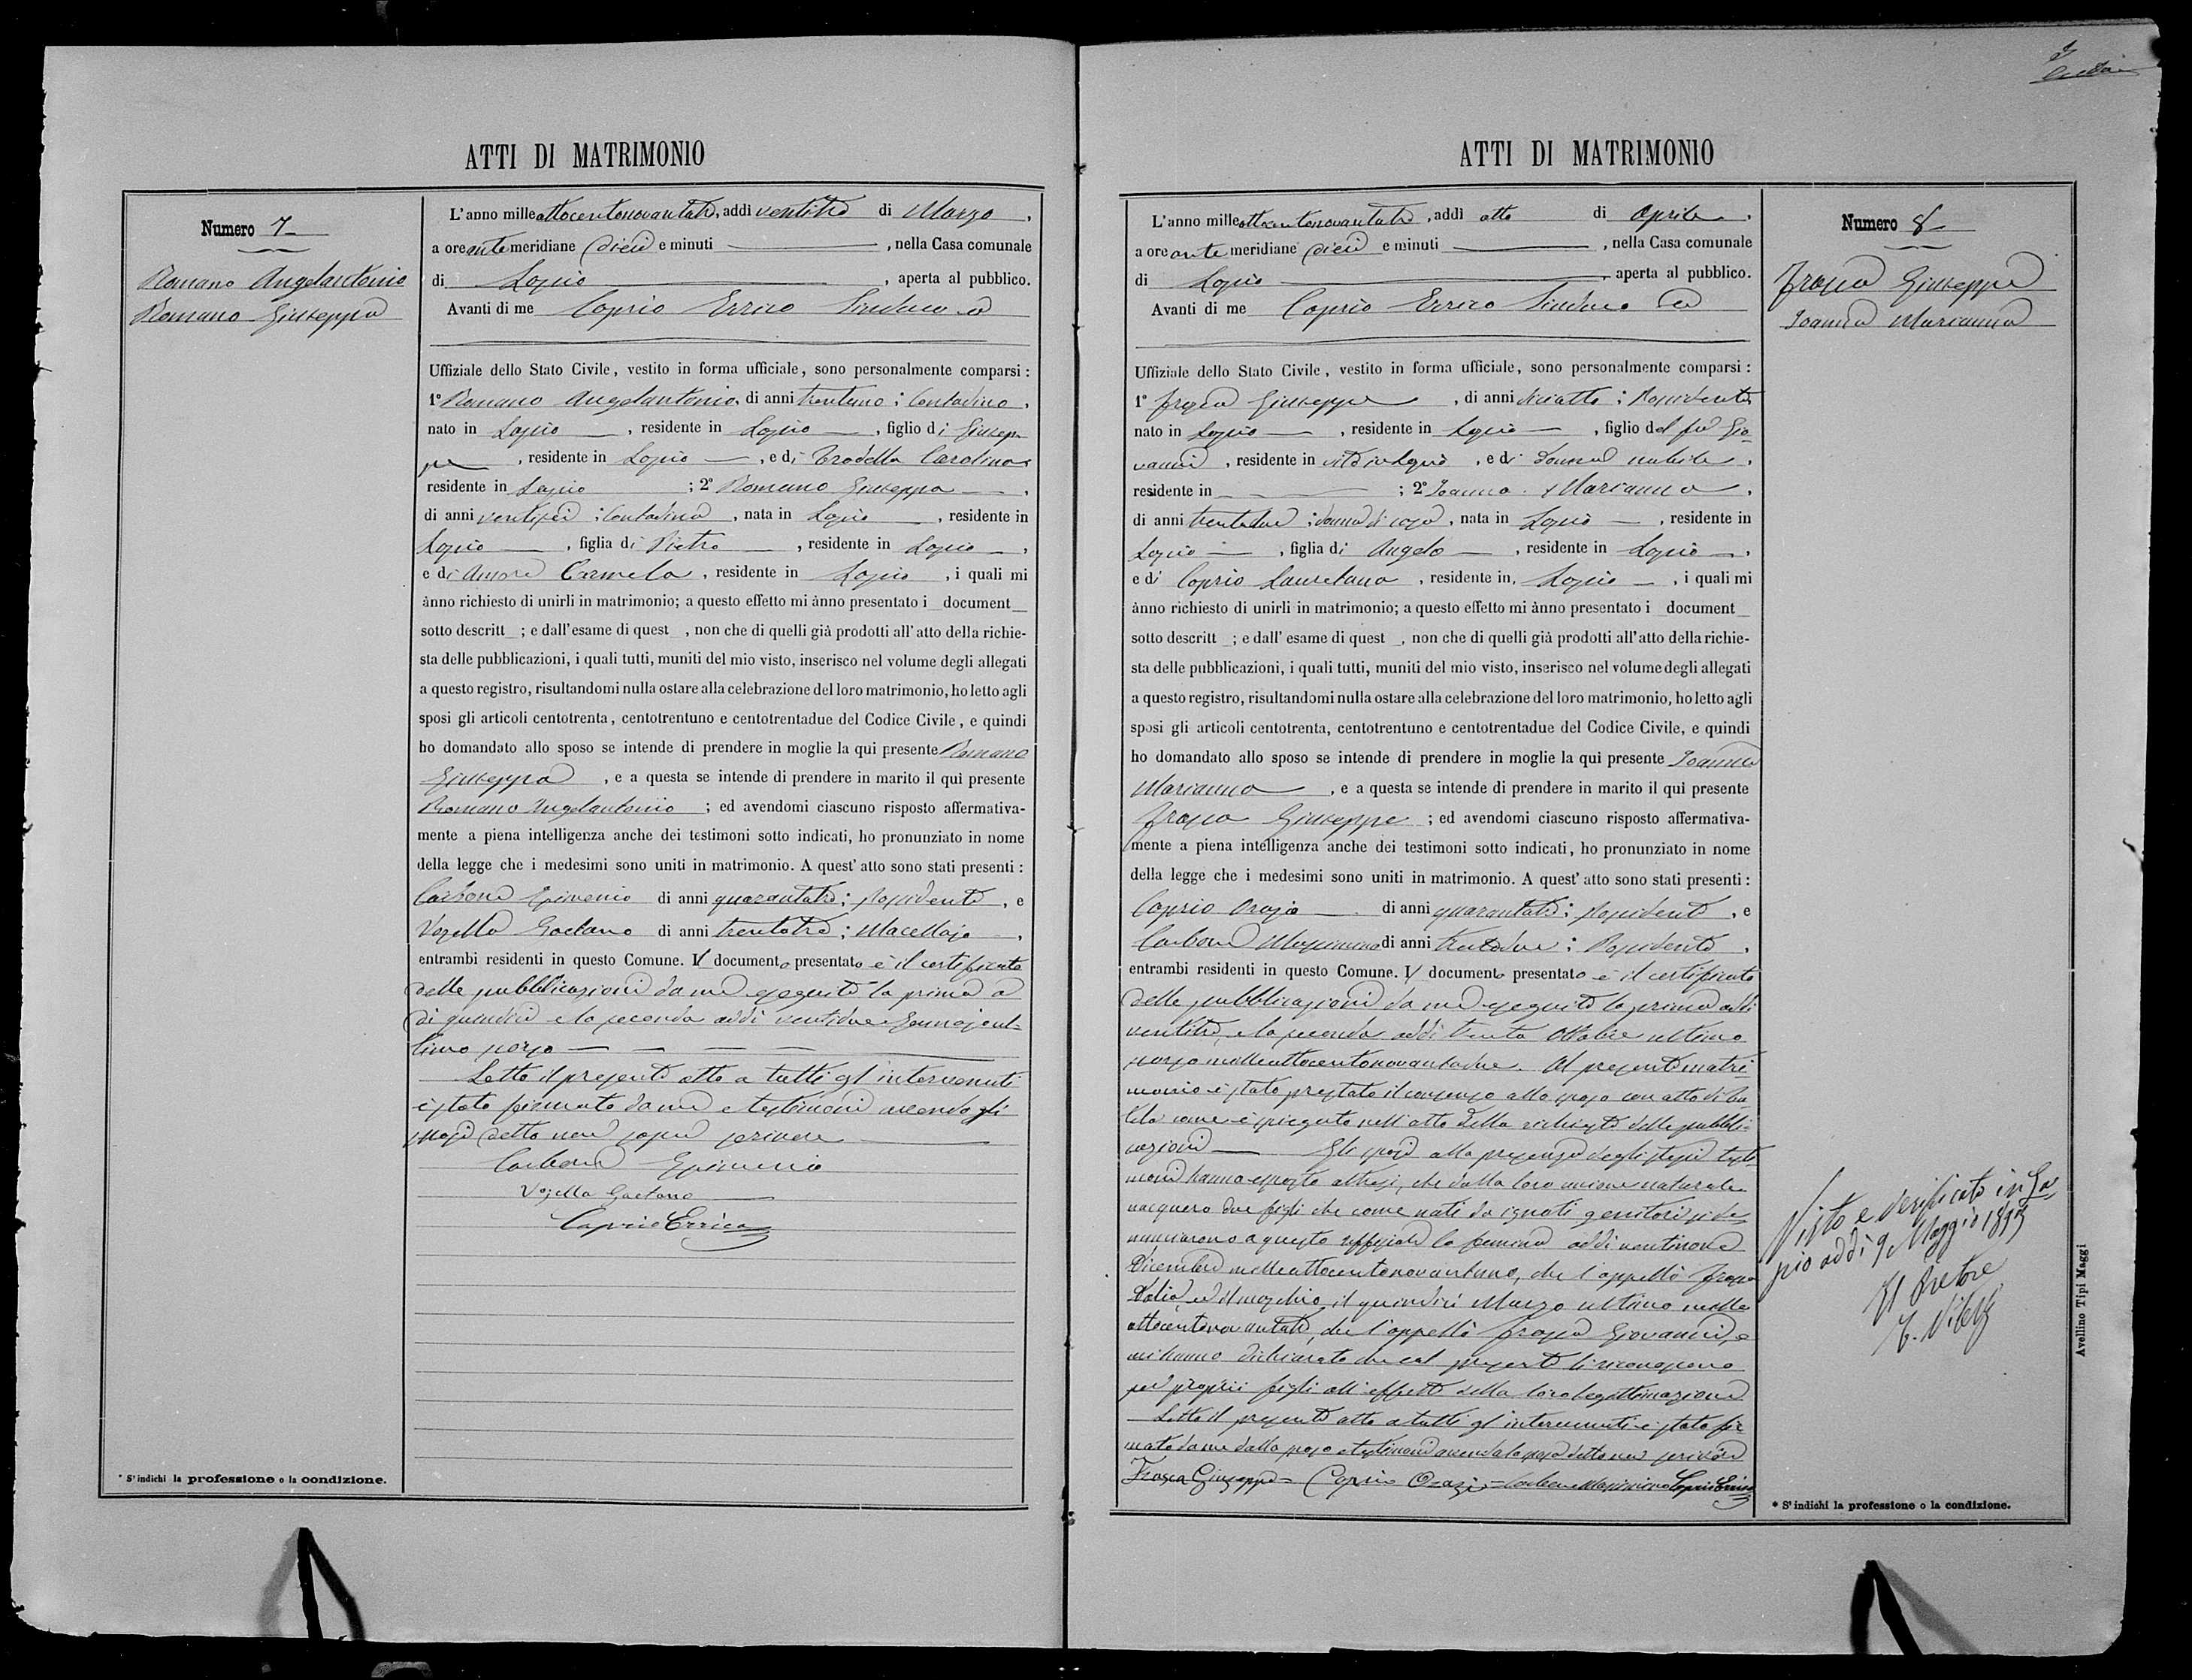 ATTI DI MATRIMONIO
Numero 7
Romano Angelantonio
Romano Giuseppa
L'anno milleottocentonovantatre, addì ventitre di Marzo,
a ore ante meridiane dieci e minuti , nella Casa comunale
di Lapio , aperta al pubblico.
Avanti di me Caprio Errico Sindaco ed
Uffiziale dello Stato Civile, vestito in forma ufficiale, sono personalmente comparsi:
1° Romano Angelantonio, di anni trentuno; Contadino,
nato in Lapio , residente in Lapio , figlio di Giusep
pe , residente in Lapio , e di Trodella Carolina
residente in Lapio ; 2° Romano Giuseppa ,
di anni ventisei; Contadina , nata in Lapio , residente in
Lapio , figlia di Pietro , residente in Lapio ,
e di Amore Carmela , residente in Lapio , i quali mi
ànno richiesto di unirli in matrimonio; a questo effetto mi ànno presentato i document
sotto descritt ; e dall'esame di quest , non che di quelli già prodotti all'atto della richie-
sta delle pubblicazioni, i quali tutti, muniti del mio visto, inserisco nel volume degli allegati
a questo registro, risultandomi nulla ostare alla celebrazione del loro matrimonio, ho letto agli
sposi gli articoli centotrenta, centotrentuno e centotrentadue del Codice Civile, e quindi
ho domandato allo sposo se intende di prendere in moglie la qui presente Romano
Giuseppa , e a questa se intende di prendere in marito il qui presente
Romano Angelantonio ; ed avendomi ciascuno risposto affermativa-
mente a piena intelligenza anche dei testimoni sotto indicati, ho pronunziato in nome
della legge che i medesimi sono uniti in matrimonio. A quest'atto sono stati presenti:
Carbone Epimenio di anni quarantatre; Possidente , e
Vozella Gaetano di anni trentatre; Macellajo ,
entrambi residenti in questo Comune. Il documento presentato è il certificato
delle pubblicazioni da me eseguite la prima a
di quindici e la seconda addì ventidue Gennajo ul-
timo scorso
Letto il presente atto a tutti gl'intervenuti
è stato firmato da me e testimoni avendo gli
sposi detto non saper scrivere
Carbone Epimenio
Vozella Gaetano
Caprio Errico
* S'indichi la professione o la condizione.
ATTI DI MATRIMONIO
L'anno milleottocentonovantatre, addì otto di Aprile,
a ore ante meridiane dieci e minuti , nella Casa comunale
di Lapio , aperta al pubblico.
Avanti di me Caprio Errico Sindaco ed
Uffiziale dello Stato Civile, vestito in forma ufficiale, sono personalmente comparsi:
1° Frasca Giuseppe , di anni diciotto; Possidente,
nato in Lapio , residente in Lapio , figlio del fu Gio-
vanni , residente in vita in Lapio , e di donna nubile ,
residente in ; 2° Joanna Marianna ,
di anni trentadue; donna di casa, nata in Lapio , residente in
Lapio , figlia di Angelo , residente in Lapio ,
e di Caprio Lauretana , residente in Lapio , i quali mi
ànno richiesto di unirli in matrimonio; a questo effetto mi ànno presentato i document
sotto descritt ; e dall'esame di quest , non che di quelli già prodotti all'atto della richie-
sta delle pubblicazioni, i quali tutti, muniti del mio visto, inserisco nel volume degli allegati
a questo registro, risultandomi nulla ostare alla celebrazione del loro matrimonio, ho letto agli
sposi gli articoli centotrenta, centotrentuno e centotrentadue del Codice Civile, e quindi
ho domandato allo sposo se intende di prendere in moglie la qui presente Joanna
Marianna , e a questa se intende di prendere in marito il qui presente
Frasca Giuseppe ; ed avendomi ciascuno risposto affermativa-
mente a piena intelligenza anche dei testimoni sotto indicati, ho pronunziato in nome
della legge che i medesimi sono uniti in matrimonio. A quest'atto sono stati presenti:
Caprio Orazio di anni quarantatre; Possidente , e
Carbone Massimino di anni trentadue; Possidente ,
entrambi residenti in questo Comune. Il documento presentato è il certificato
delle pubblicazioni da me eseguite la prima addì
ventitre, e la seconda addì trenta Ottobre ultimo
scorso milleottocentonovantadue. Al presente matri-
monio è stato prestato il consenso allo sposo con atto di
come è spiegato nell'atto della richiesta delle pubbli-
cazioni Gli sposi alla presenza degli stessi testi-
moni hanno esposto altresì, che dalla loro unione naturale
nacquero due figli che come nati da ignoti genitori si de-
nunciarono a questo uffiziale la femina addì ventinove
Dicembre milleottocentonovantuno, che l'appellò Frasca
ed il maschio il quindici Marzo ultimo mille
ottocentonovantatre, che l'appellò Frasca Giovanni, e
mi hanno dichiarato che col presente li riconoscono
per proprii figli all'effetto della loro legittimazione
Letto il presente atto a tutti gl'intervenuti è stato fir
mato da me dallo sposo e testimoni avendo la sposa detto non scrivere
Frasca Giuseppe = Caprio Orazio = Carbone Massimino Caprio Errico
Numero 8
Frasca Giuseppe
Joanna Marianna
Visto e verificato in La-
pio addì 9 Maggio 1893
Il Pretore
* S'indichi la professione o la condizione.
Avellino Tipi Maggi